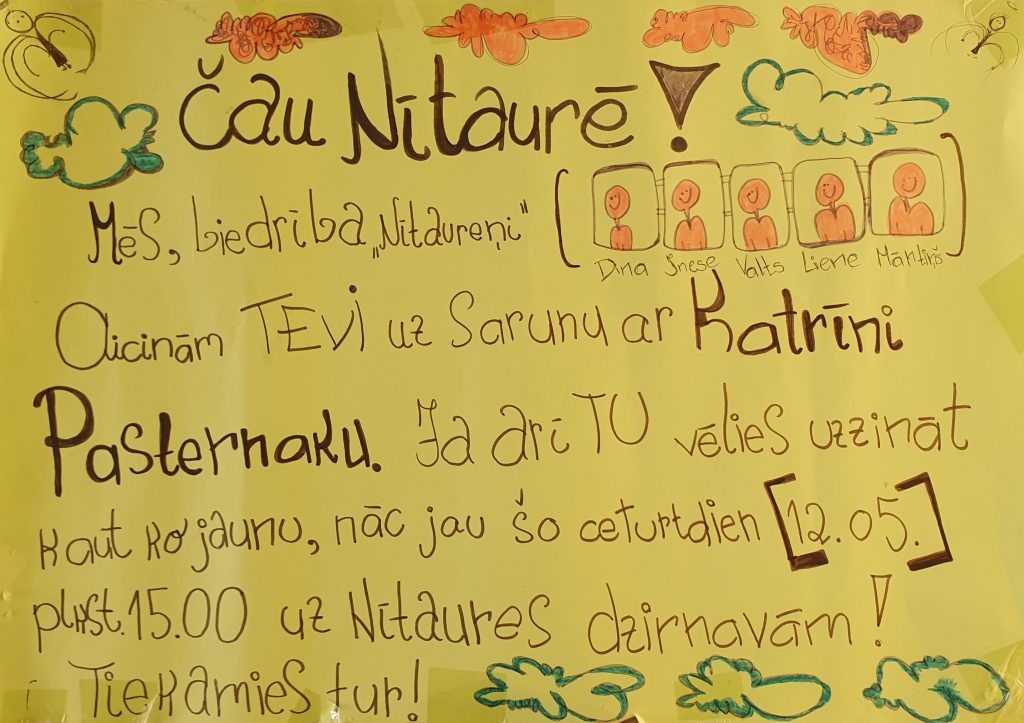 Čau Nītaurē!
Mēs, biedrība „Nītaureņi"
Dina Inese Valts Liene Mārtiņš
Aicinām TEVI uz Sarunu ar Katrīni
Pasternaku. Ja arī TU vēlies uzzināt
kaut ko jaunu, nāc jau šo ceturtdien [12.05.]
plkst. 15.00 uz Nītaures dzirnavām!
Tiekamies tur!